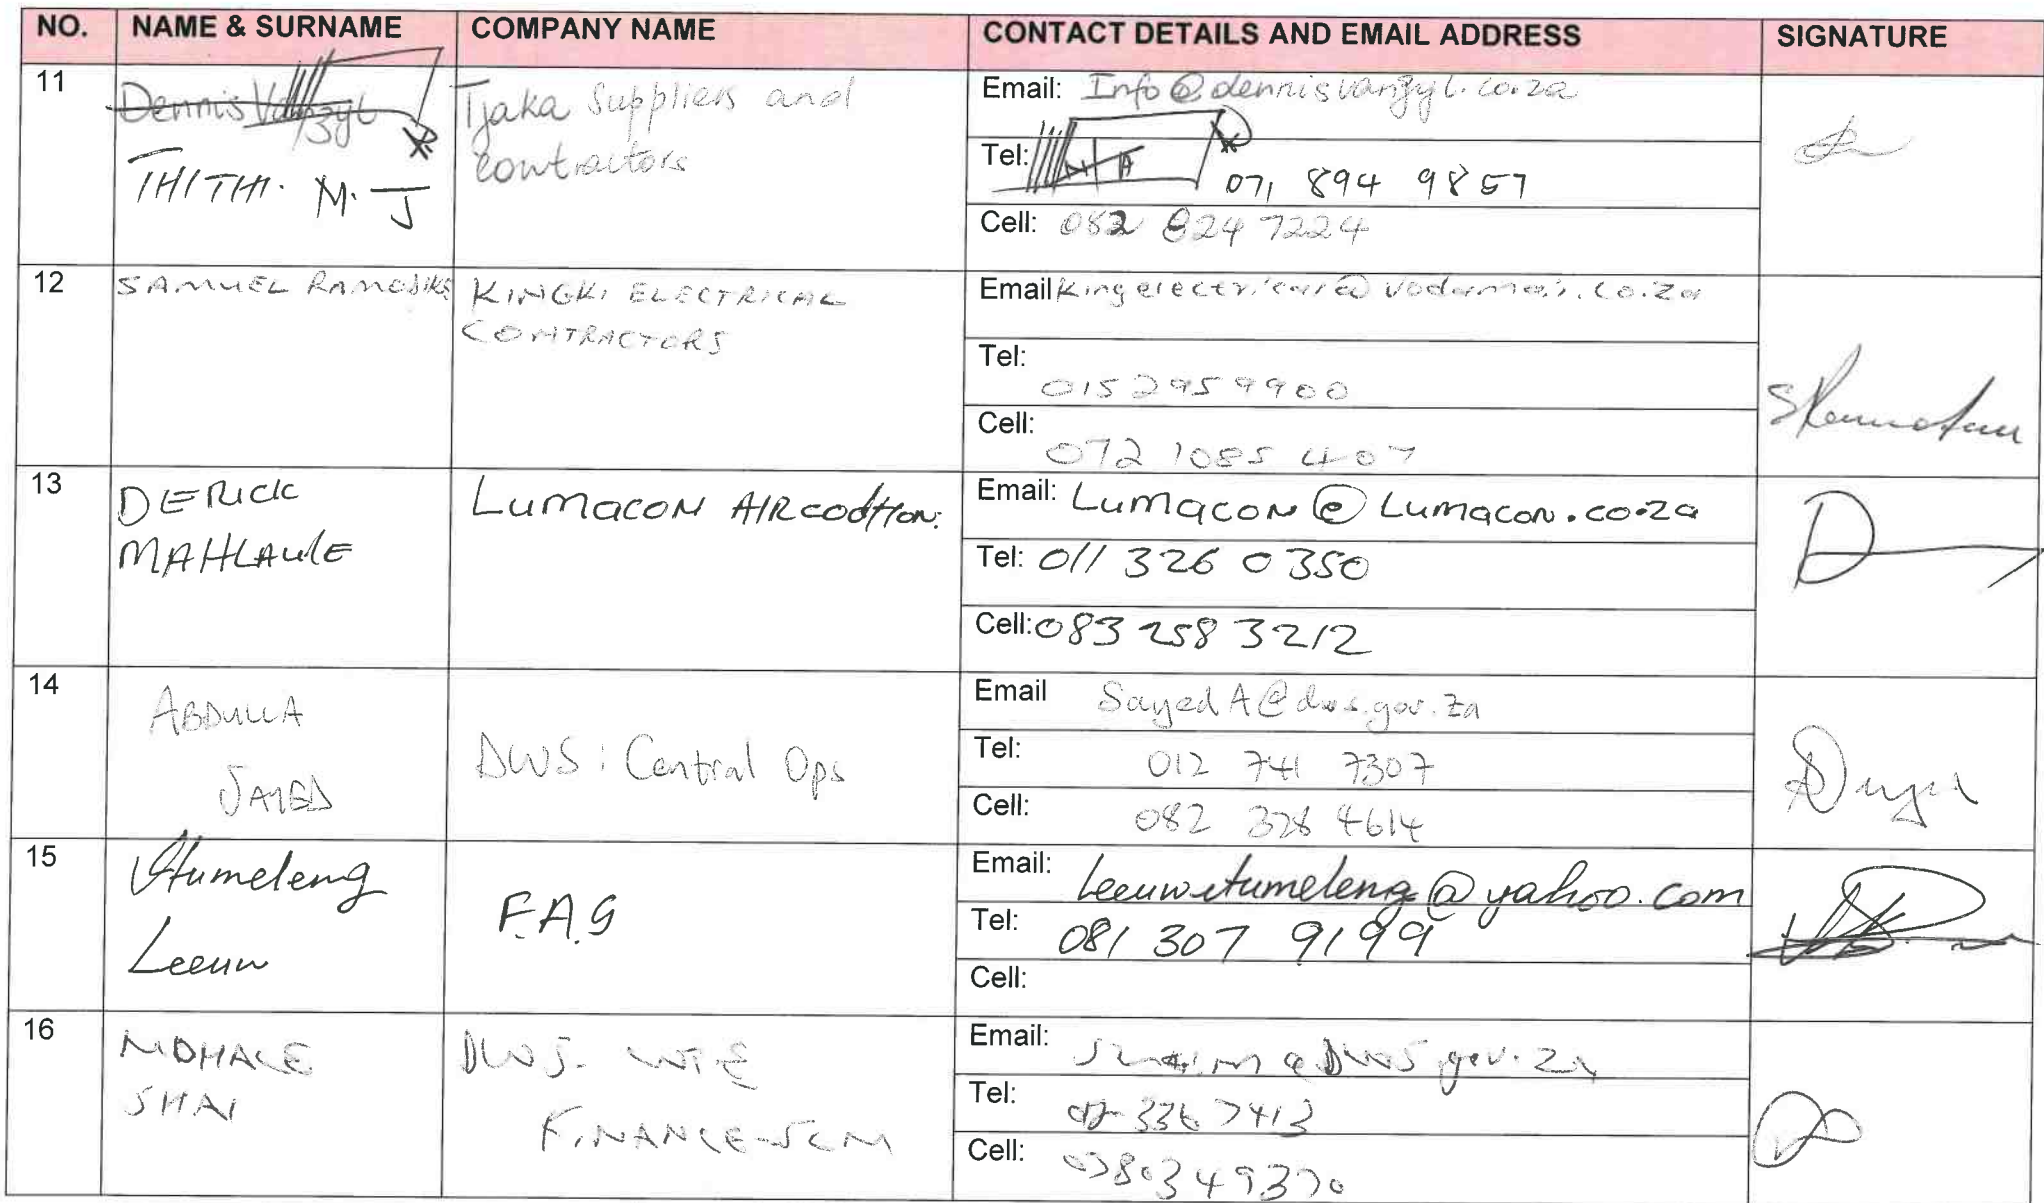 NO. NAME & SURNAME COMPANY NAME CONTACT DETAILS AND EMAIL ADDRESS SIGNATURE
11
Dennis Vanzyl
THITHI. M. J
Tjaka Suppliers and
contractors
Email: Info@dennisvanzyl.co.za
Tel: N/A 071 894 9857
Cell: 082 824 7224
12
SAMUEL
KINGKI ELECTRICAL
CONTRACTORS
Email
Tel:
015 295 9900
Cell:
072 1085 407
13
DERICK
MAHLAULE
LUMACON AIRCODTION.
Email: Lumacon@Lumacon.co.za
Tel: 011 326 0350
Cell: 083 258 3212
14
ABDULLA
SAYED
DWS: Central Ops
Email SayedA@dws.gov.za
Tel: 012 741 7307
Cell: 082 328 4614
15
Itumeleng
Leeuw
F.A.G
Email: leeuwitumeleng@yahoo.com
Tel: 081 307 9199
Cell:
16
MOHALE
SHAI
DWS- WTE
FINANCE-SCM
Email:
Tel: 012 336 7413
Cell: